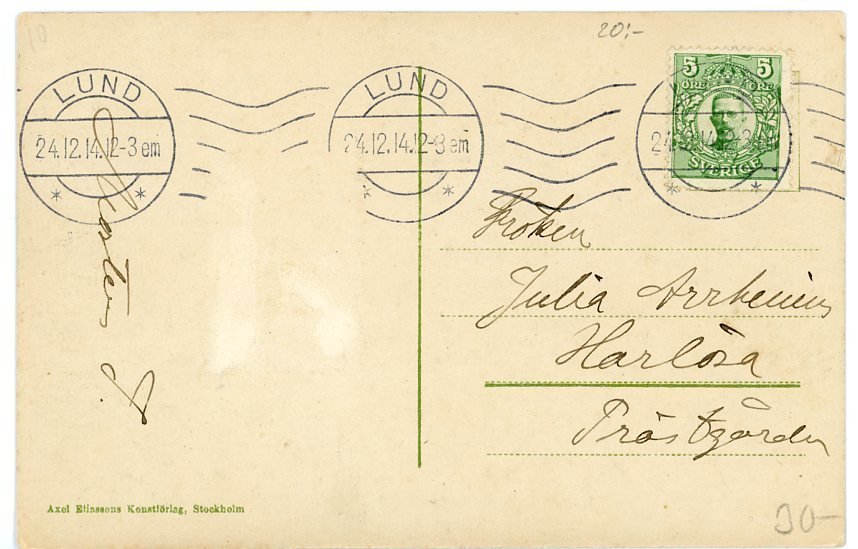 10
20:-
LUND
24.12.14.12-3 em
LUND
24.12.14.12-3 em
5 5
ÖRE ÖRE
SVERIGE
24
Fröken
Julia Arrhenius
Harlösa
Prästgården
Axel Eliassons Konstförlag, Stockholm
30-